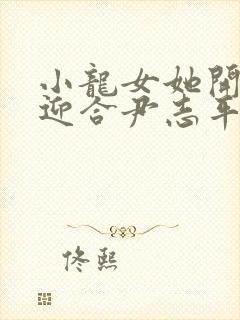 小龍女她開
迎合尹志平
佟熙